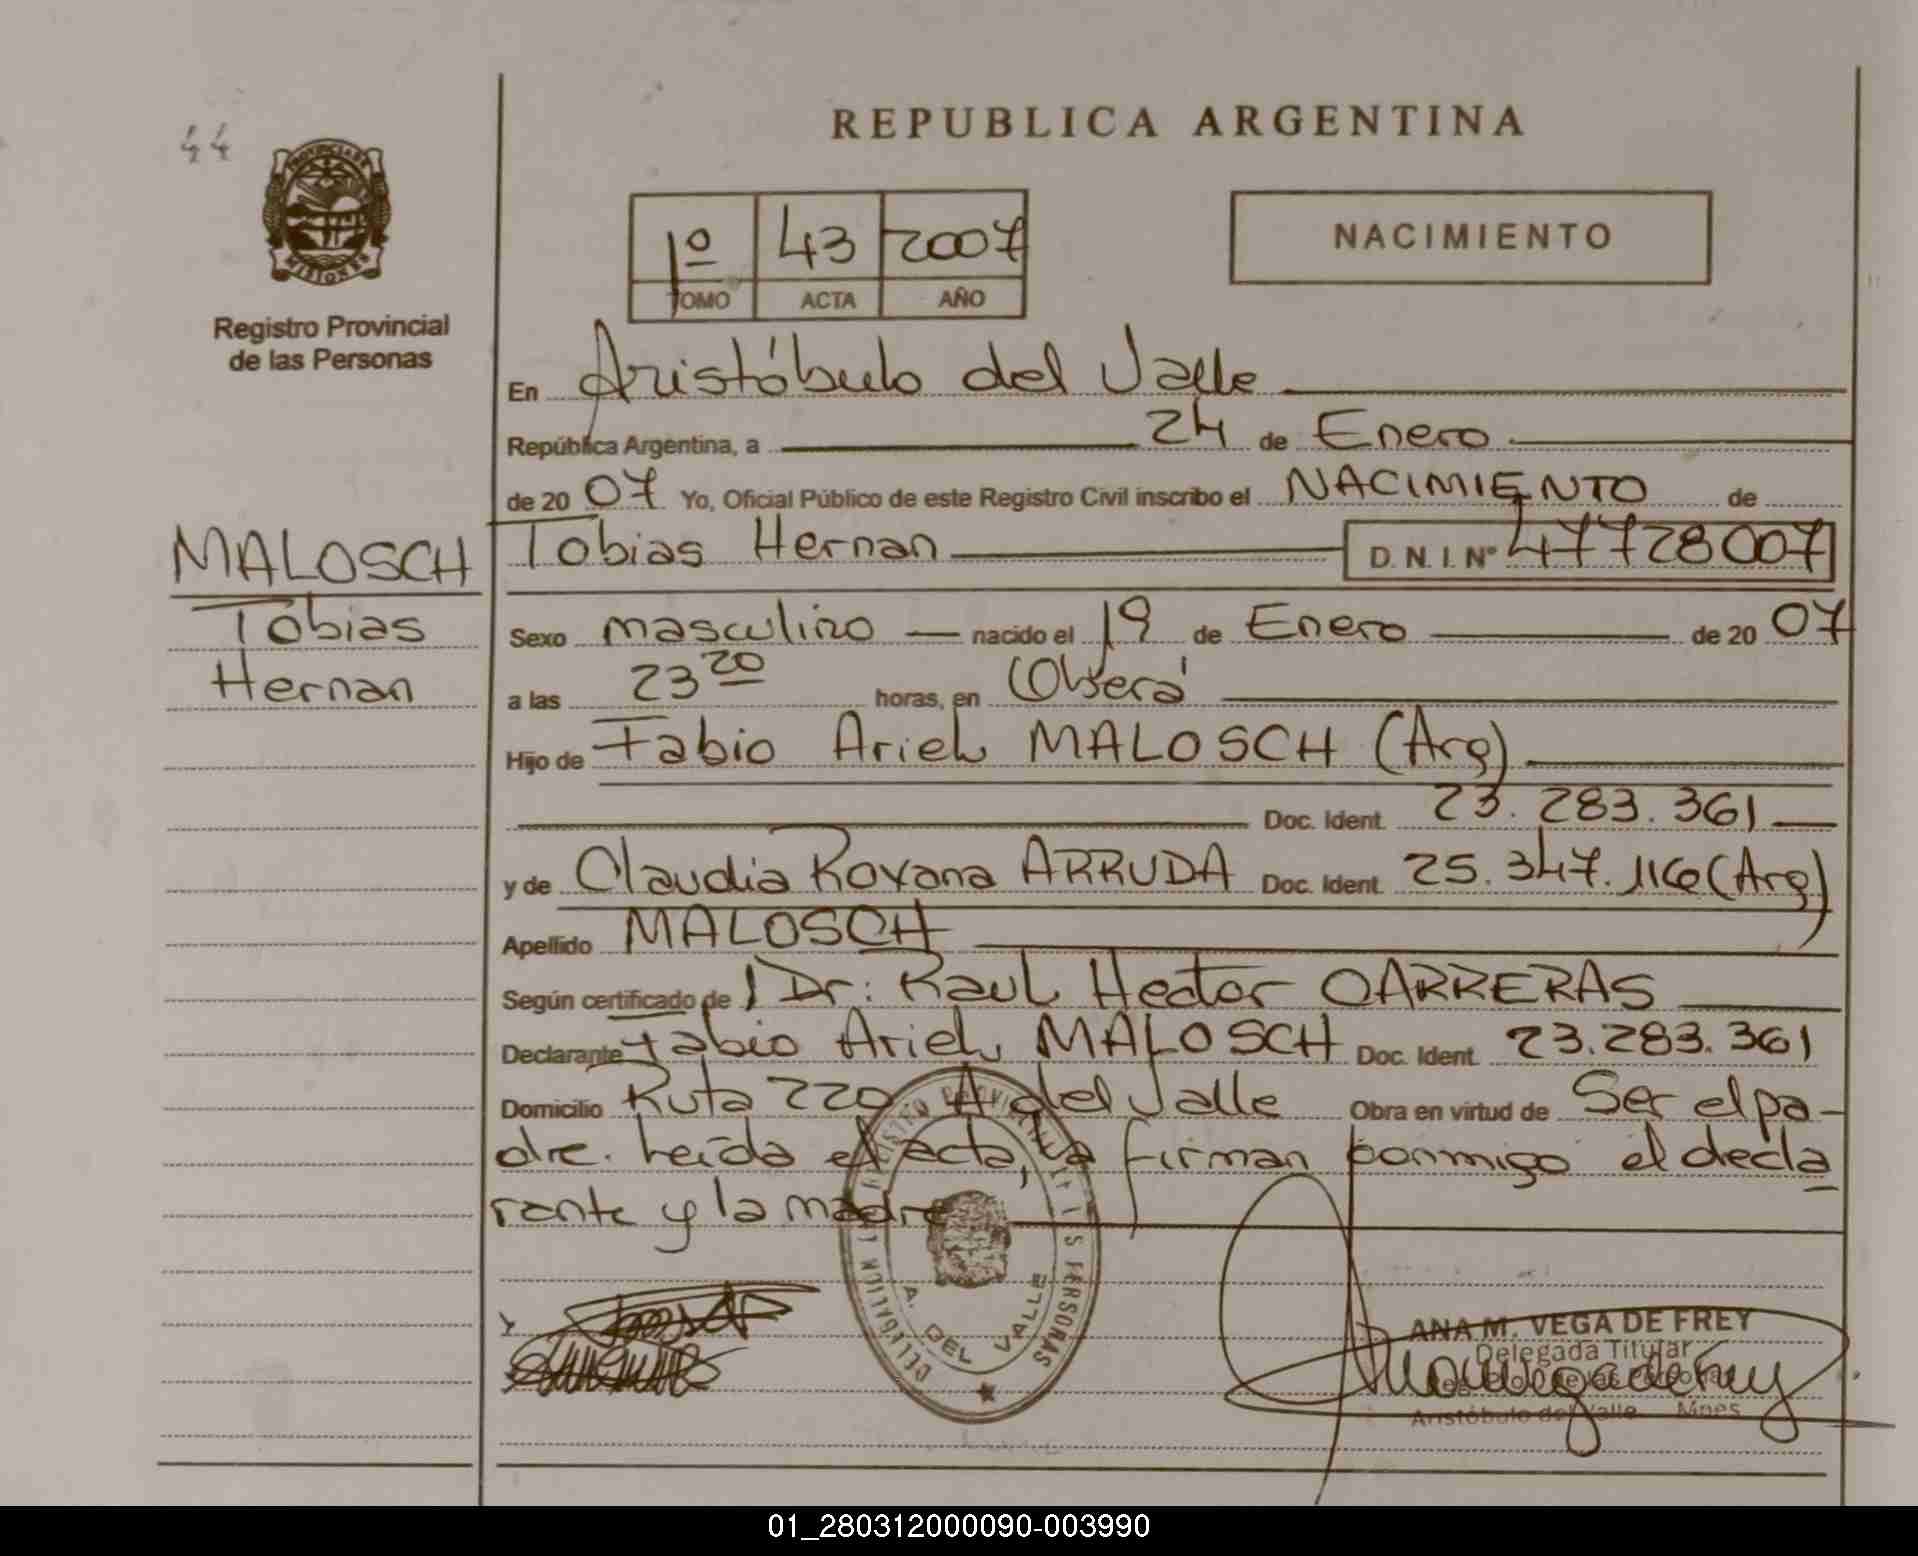 44
REPUBLICA ARGENTINA
PROVINCIA DE
MISIONES
Registro Provincial
de las Personas
1º 43 2007
TOMO ACTA AÑO
NACIMIENTO
En Aristóbulo del Valle
República Argentina, a 24 de Enero
de 20 07 Yo, Oficial Público de este Registro Civil inscribo el NACIMIENTO de
MALOSCH Tobias Hernan D. N. I. Nº 47728007
Tobias Sexo masculino nacido el 19 de Enero de 20 07
Hernan a las 23 20 horas, en Oberá
Hijo de Fabio Ariel MALOSCH (Arg)
Doc. Ident. 23.283.361
y de Claudia Roxana ARRUDA Doc. Ident. 25.347.116 (Arg)
Apellido MALOSCH
Según certificado de Dr: Raul Hector CARRERAS
Declarante Fabio Ariel MALOSCH Doc. Ident. 23.283.361
Domicilio Ruta 220 A del Valle Obra en virtud de Ser el pa-
dre. Leída el acta, la firman conmigo el decla
rante y la madre
DELEGACION REGISTRO PROVINCIAL DE LAS PERSONAS
A. DEL VALLE
ANA M. VEGA DE FREY
Delegada Titular
Reg. Prov. de las Personas
Aristóbulo del Valle Mnes
01_280312000090-003990